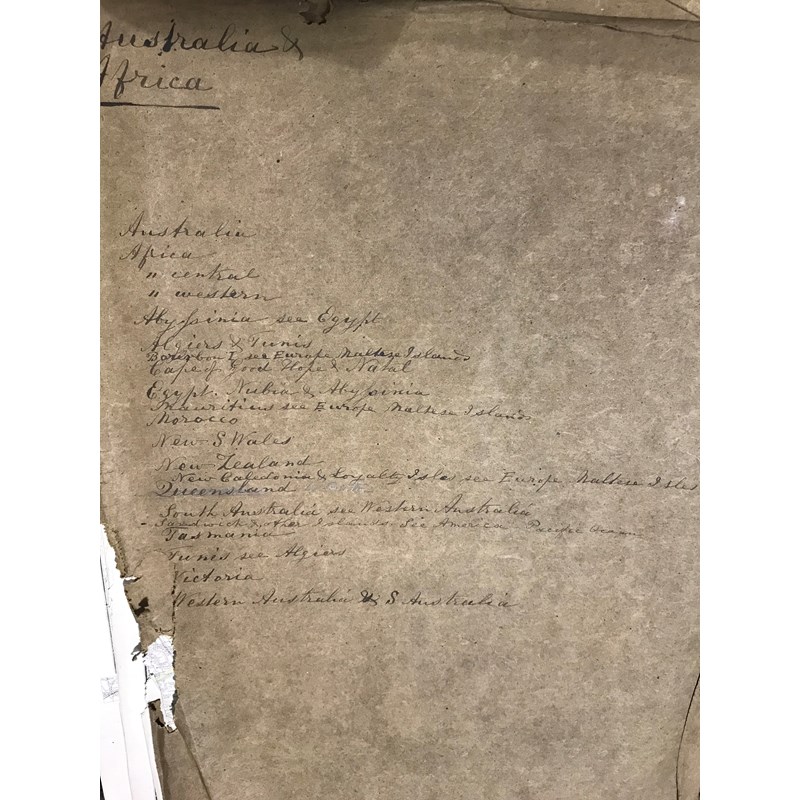 Australia &
Africa
Australia
Africa
" central
" western
Abyssinia see Egypt
Algiers & Tunis
Bourbon I. see Europe Maltese Islands
Cape of Good Hope & Natal
Egypt. Nubia & Abyssinia
Mauritius see Europe Maltese Islands
Morocco
New S Wales
New Zealand
New Caledonia & Loyalty Isles see Europe Maltese Isles
Queensland
South Australia see Western Australia
- Sandwich & other Islands. See America Pacific Ocean
Tasmania
Tunis see Algiers
Victoria
Western Australia & S Australia